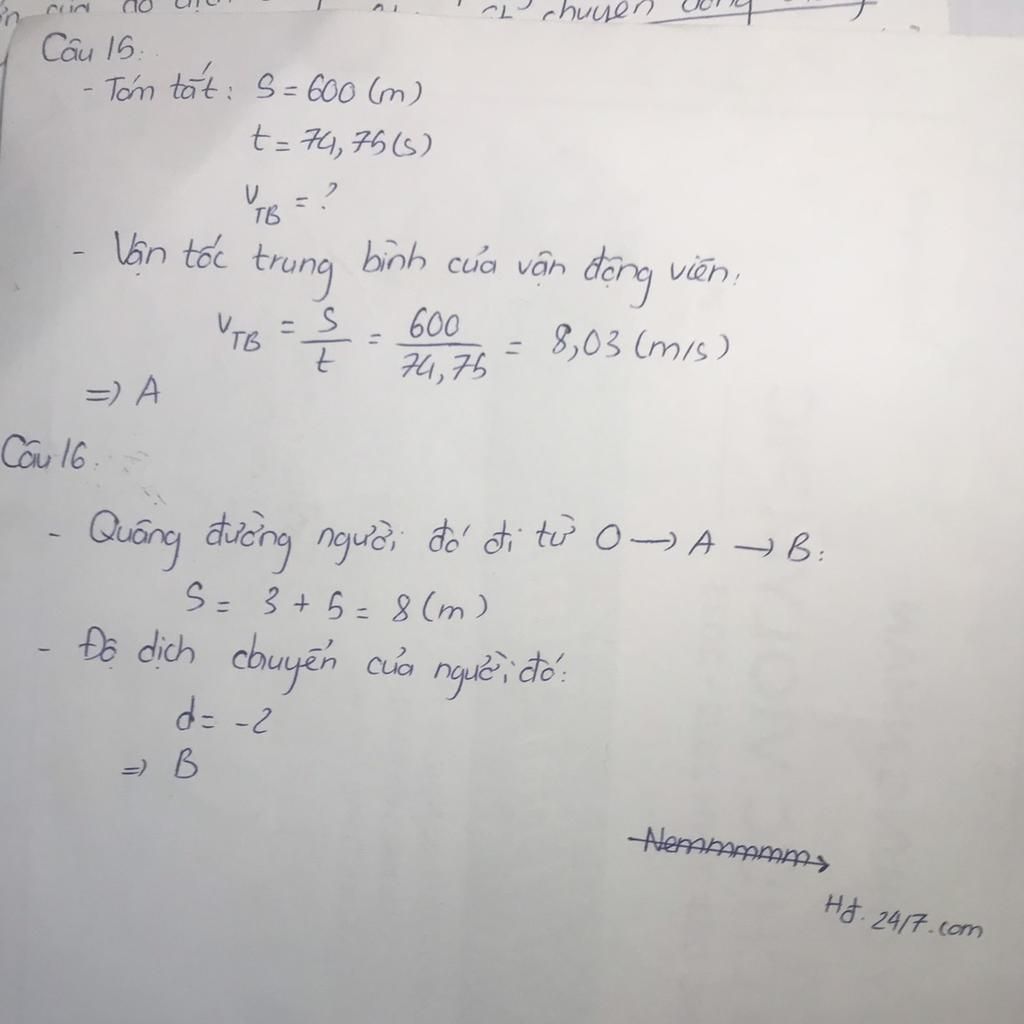 chuyển động
Câu 15:
- Tóm tắt: S = 600 (m)
t = 74,75 (s)
v_TB = ?
- Vận tốc trung bình của vận động viên:
v_TB = S/t = 600/74,75 = 8,03 (m/s)
=> A
Câu 16.
- Quãng đường người đó đi từ O → A → B:
S = 3 + 5 = 8 (m)
- Độ dịch chuyển của người đó:
d = -2
=> B
Nemmmmmm
Hđ. 24/7.com